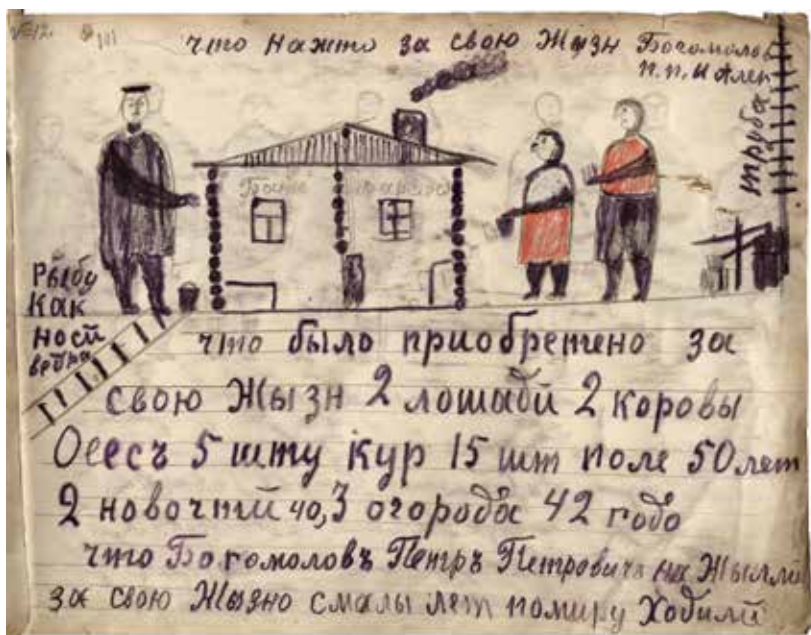 №12.
что нажто за свою Жызн Богомолов
п.п. и Ален
труба
Баня
Рыбу
Как
носй
что было приобретено за
свою Жызн 2 лошадй 2 коровы
Овесъ 5 шту кур 15 шт поле 50 лет
2 40, 3 огорода 42 годо
что Богомоловъ Петръ Петровичъ на Жылй
за свою Жызно смалы лет помиру Ходилй